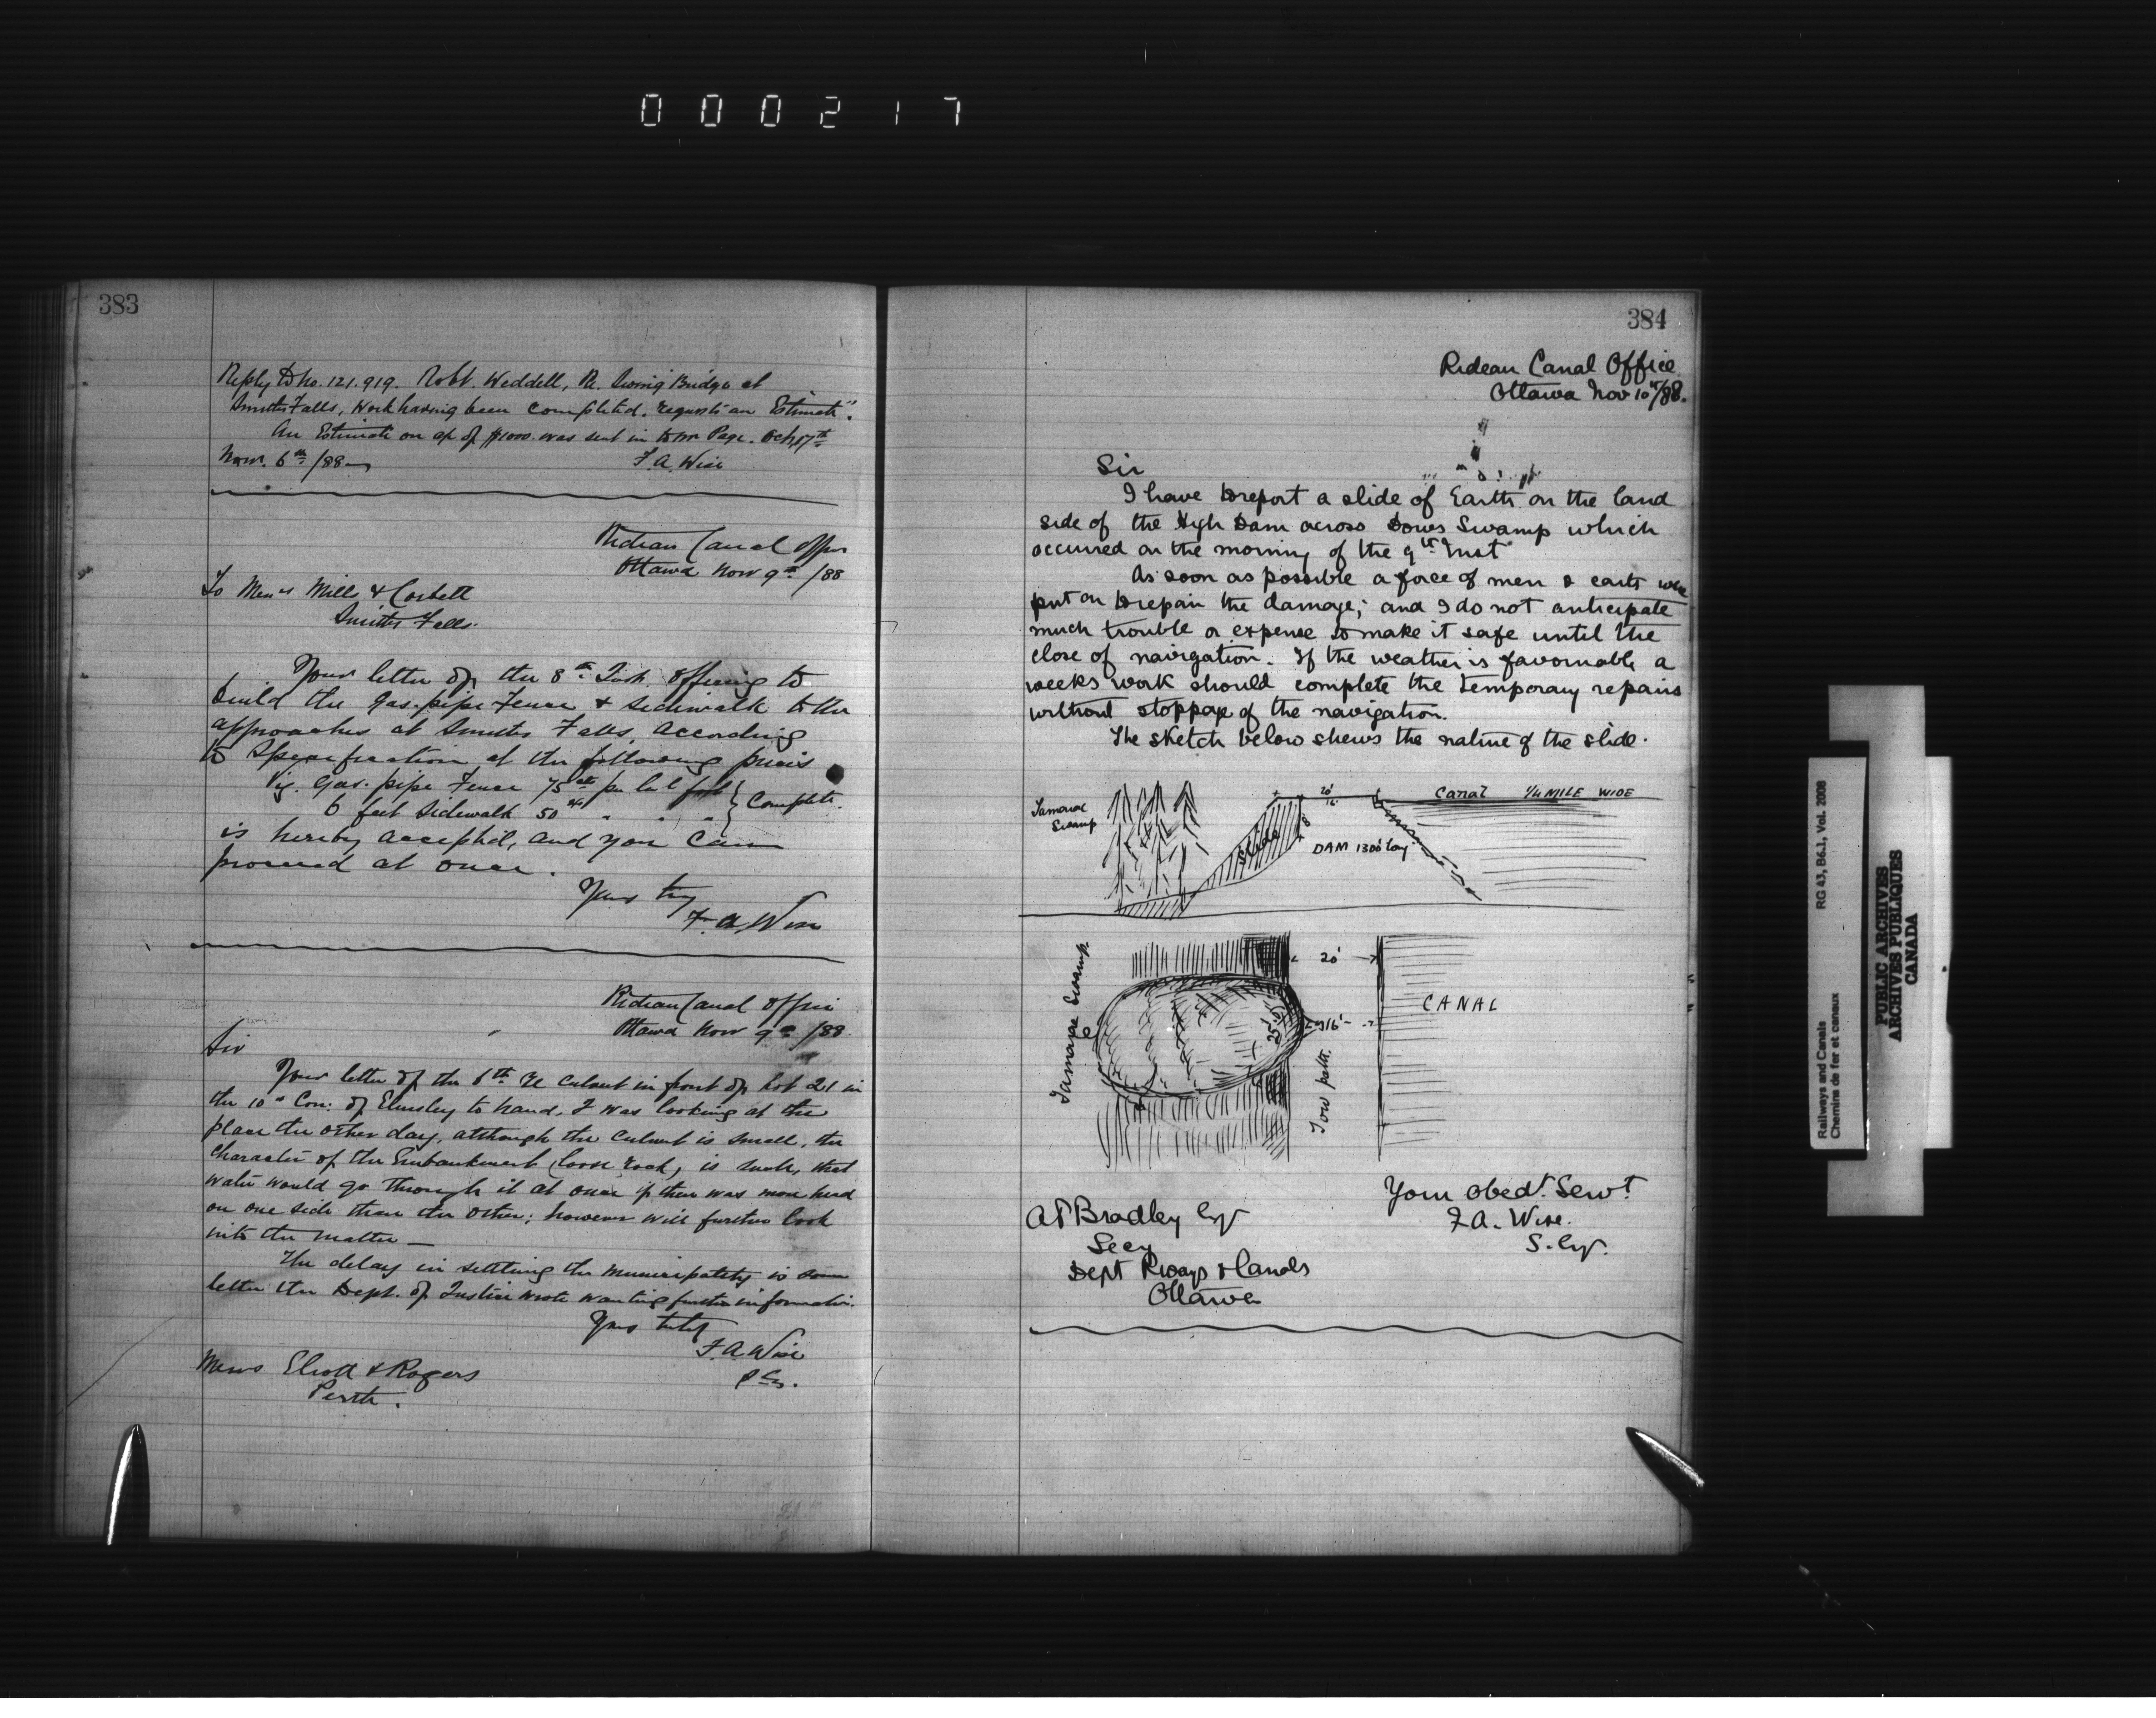 000217
383
Reply to No. 121.919. Robt. Weddell, Re. Swing Bridge at
Smiths Falls, Work having been completed. requests an Estimate".
An Estimate on a/c of $1000. was sent in to Mr Page. Oct, 17th
Novr. 6th /88
F. A. Wise
Rideau Canal Office
Ottawa Nov 9th /88
To Messrs Mills & Corbett
Smiths Falls.
Your letter of the 8th Inst. offering to
build the Gas-pipe Fence & Sidewalk to the
approaches at Smiths Falls, according
to Specification at the following prices
Viz. Gas-pipe Fence 75 cts per foot } Complete.
6 feet Sidewalk 50 cts " " "
is hereby accepted, and you can
proceed at once.
Yours try
F. A. Wise
Rideau Canal Office
Ottawa Nov 9th /88
Sir
Your letter of the 6th re Culvert in front of Lot 21 in
the 10th Con: of Elmsley to hand. I was looking at the
place the other day, although the Culvert is small, the
Character of the Embankment (loose rock) is such, that
water would go through it at once if there was more head
on one side than the other; however will further look
into the matter —
The delay in settling the Municipality is some
letter the Dept. of Justice wrote wanting further information.
Yours truly
F. A. Wise
Messrs Eliott & Rogers
Perth.
384
Rideau Canal Office
Ottawa Nov 10th/88.
Sir
I have to report a slide of Earth on the land
side of the High Dam across Dows Swamp which
occurred on the morning of the 9th Inst
As soon as possible a force of men & carts were
put on to repair the damage; and I do not anticipate
much trouble or expense to make it safe until the
close of navigation. If the weather is favourable a
weeks work should complete the temporary repairs
without stoppage of the navigation.
The sketch below shews the nature of the slide.
Tamarac
Swamp
20'
16'
Canal 1/4 MILE WIDE
Slide
8'
DAM 1300' long
Tamarac Swamp
20'
CANAL
25'
16'
Tow path.
Your Obedt. Servt
F A. Wise.
S. Eng.
A P Bradley Esq
Secy
Dept Rways & Canals
Ottawa
Railways and Canals
Chemins de fer et canaux
RG 43, B6.1, Vol. 2008
PUBLIC ARCHIVES
ARCHIVES PUBLIQUES
CANADA